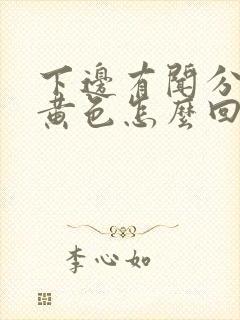 下邊有聞分
黄色怎麼回
李心如